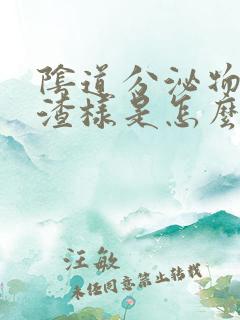 陰道分泌物
渣樣是怎麼
汪敏
未经同意禁止转载